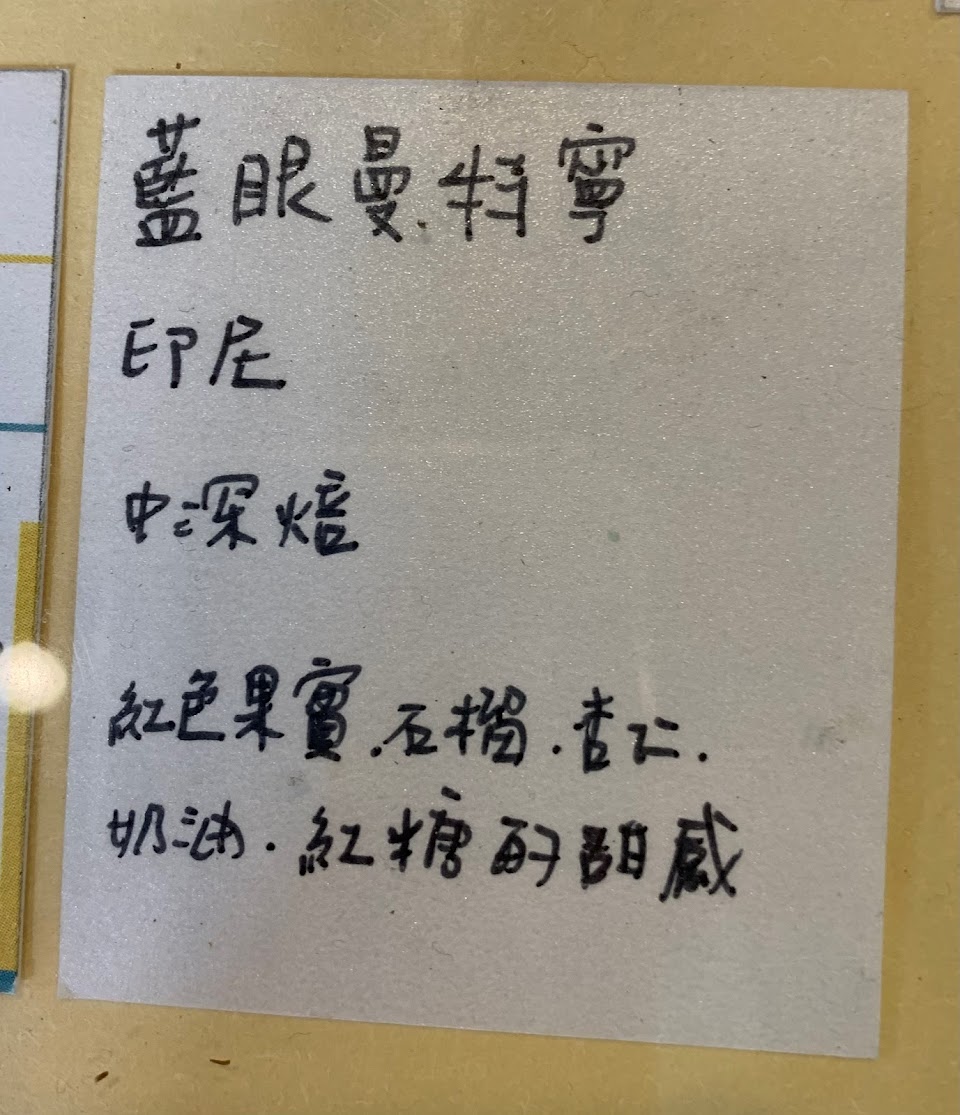 藍眼曼特寧
印尼
中深焙
紅色果實.石榴.杏仁.
奶油.紅糖的甜感